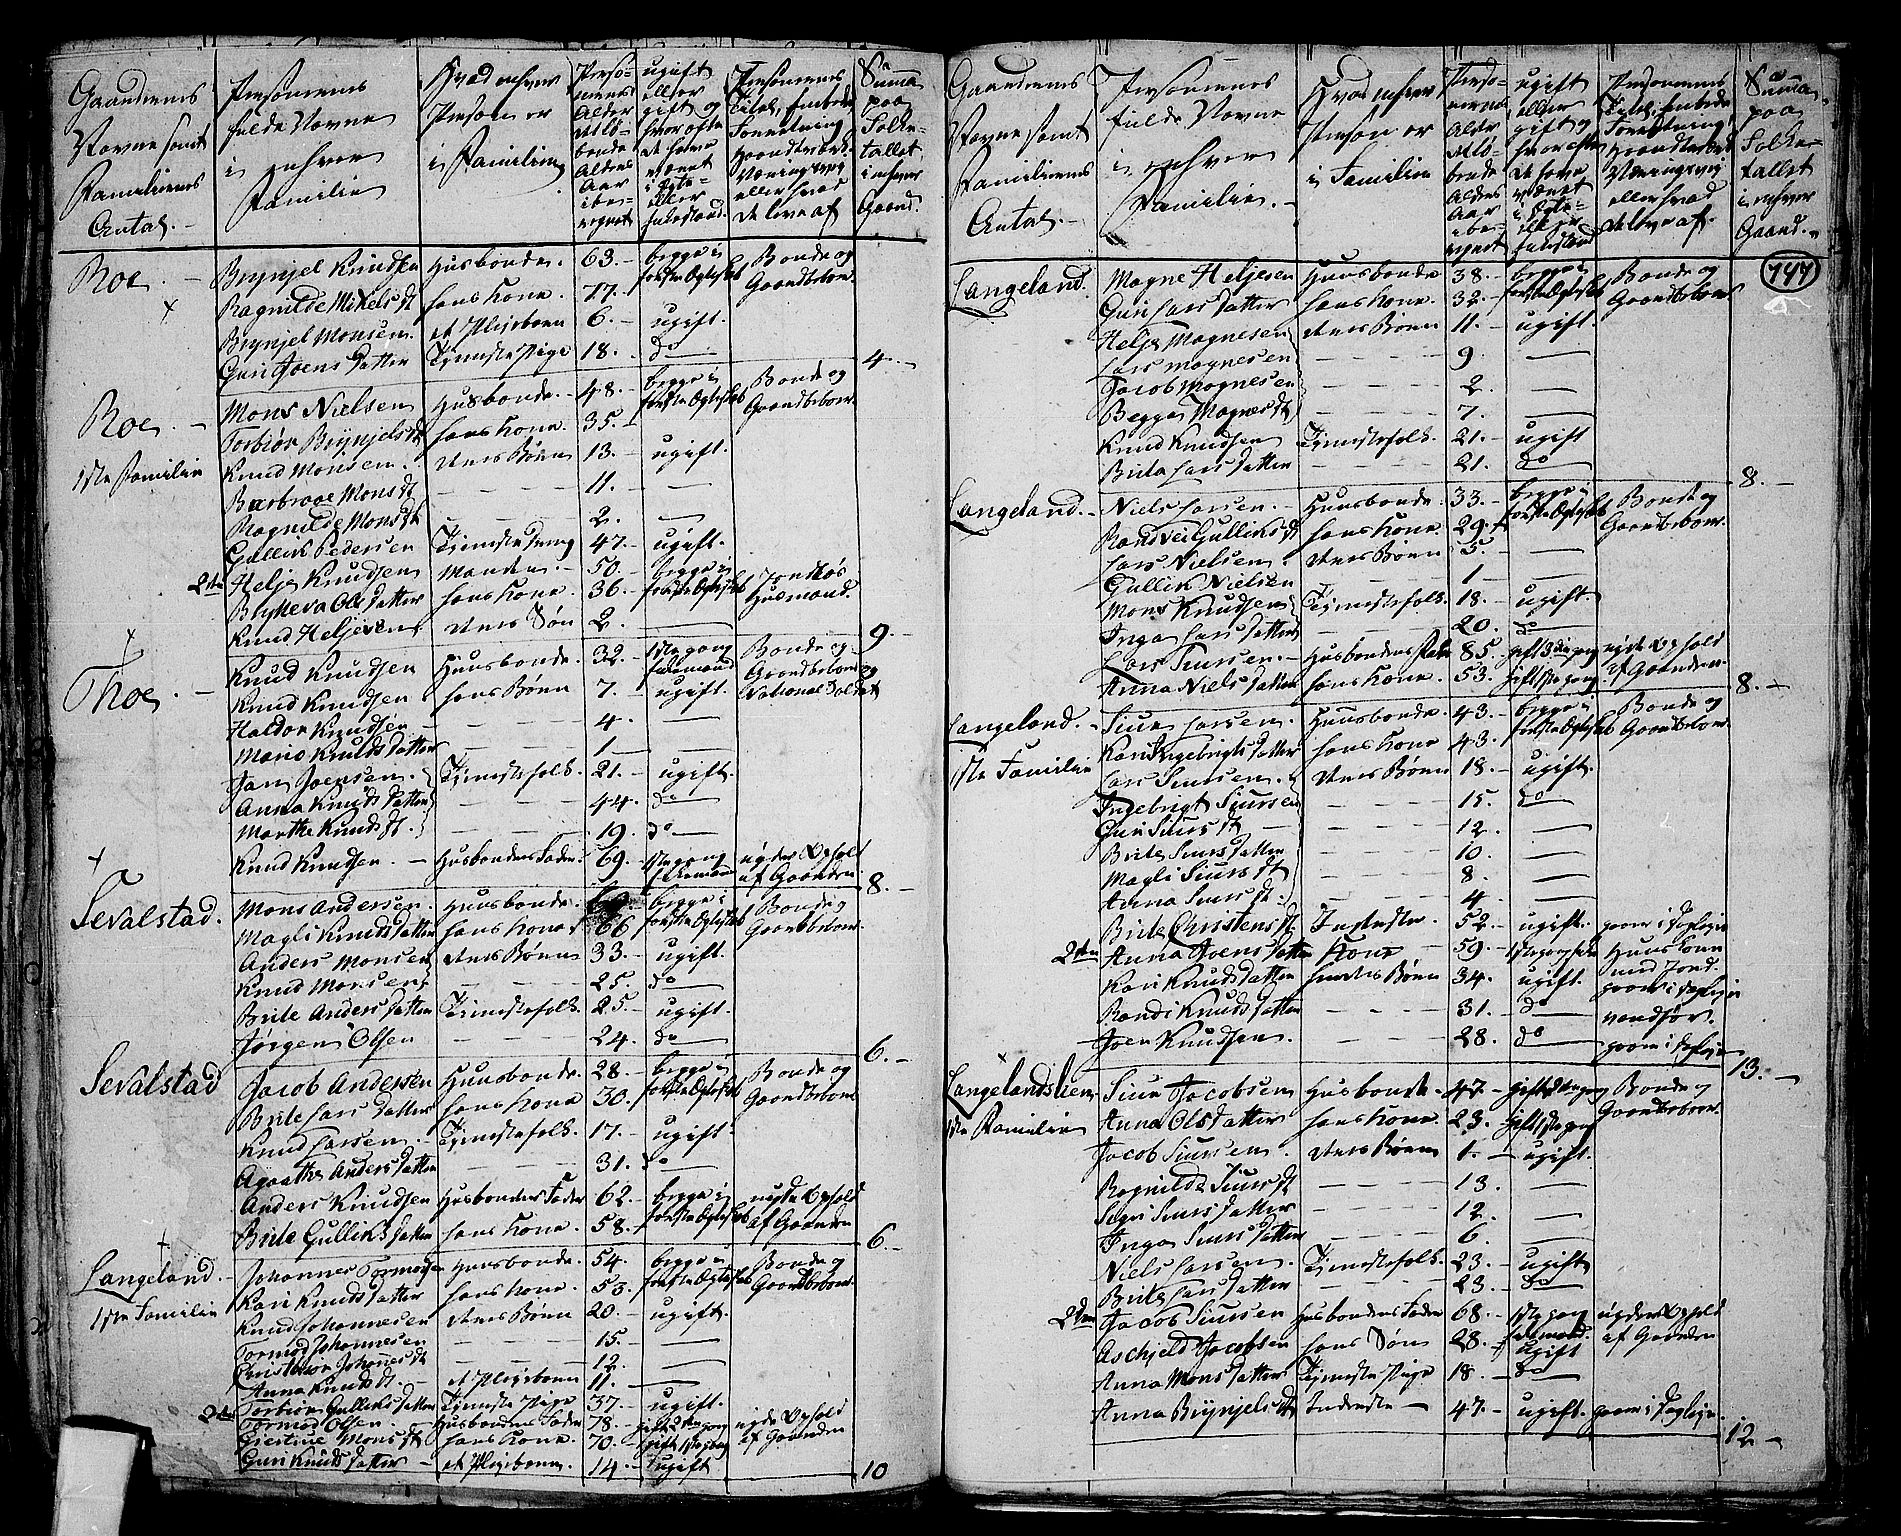 Gaardenes Navne samt Familiernes Antal. | Personernes fulde Navne i enhver Familie | Hvad enhver Person er i Familien | Personernes Alder det løbende Alders Aar iberegnet | ugift eller gift og hvor ofte de have været i Ægte- eller Enkestand | Personernes Titel, Embede Forretning Haandværk Næringsvej eller hvad de leve af | Summa paa Folketallet i enhver Gaard.
Roe. | Brynjel Knudsen | Husbonde. | 63. | begge i første Ægteskab | Bonde og Gaardbeboer
Ragnilde Mikels dt | hans Kone. | 77.
Brynjel Monsen. | et Plejebørn | 6. | ugift.
Guri Joens Datter | Tjeneste Pige | 18. | do | 4.
Roe. | Mons Nielsen | Husbonde. | 48. | begge i første Ægteskab | Bonde og Gaardbeboer
1ste Familie | Torbiør Brynjels dt | hans Kone. | 35.
Knud Monsen. | deres Børn | 13. | ugift.
Barbroe Mons dt | 11.
Ragnilde Mons dt | 2.
Gullik Pedersen | Tjeneste Dreng | 47. | ugift.
2den Helje Knudsen | Manden. | 50. | begge i første Ægteskab | Jordløs Husmand.
Olsdatter | hans Kone | 36.
Knud Heljesen | deres Søn | 2. | 9.
Thoe. | Knud Knudsen | Huusbonde. | 32. | 1ste gang Enkemand | Bonde og Gaardbeboer og National Soldat
Knud Knudsen | hans Børn | 7. | ugift
Haldor Knudsen | 4.
Mario Knuds Datter | 1.
Jan Joensen. | Tjenestefolk. | 21. | ugift.
Anna Knuds Datter | 44. | do
Martha Knuds dt. | 19. | do
Knud Knudsen. | Husbondens Fader | 69. | 1ste gang Enkemand | nyder Ophold af Gaarden | 8.
Sevalstad. | Mons Andersen. | Huusbonde. | begge i første Ægteskab | Bonde og Gaardbeboer
Magli Knuds Datter | hans Kone | 66
Anders Monsen | deres Børn | 33. | ugift.
Knud Monsen | 25. | do
Brite Anders Datter | Tjenestefolk. | 25. | ugift.
Jørgen Olsen | 24. | do | 6.
Sevalstad | Jacob Andersen | Huusbonde. | 28. | begge i første Ægteskab | Bonde og Gaardbeboer
Brite Lars Datter | hans Kone | 30.
Knud Larsen. | Tjenestefolk. | 17. | ugift.
Agaathe Anders Datter | 31. | do
Anders Knudsen | Husbondens Fader | 62. | begge i første Ægteskab | nyde Ophold af Gaarden
Brite Gulliks Datter | hans Kone. | 58. | 6.
Langeland. | Johannes Tormodsen | Huusbonde. | 54. | begge i første Ægteskab | Bonde og Gaardbeboer
1ste Familie | Kari Knuds Datter | hans Kone. | 53.
Knud Johannesen | deres Børn | 20. | ugift.
Tormod Johannesen | 15.
Johannes dt | 12.
Anna Knuds dt. | et Plejebørn | 11.
Torbiør Gulliks Datter | Tjeneste Pige | 37. | ugift
2den Tormod Olsen. | Husbondens Fader | 78. | gift 2den gang | nyde Ophold af Gaarden
Giertrue Mons dt | hans Kone. | 70. | gift 1ste gang
Guri Knuds Datter | et Plejebørn | 14. | ugift | 10
Gaardenes Navne samt Familiernes Antal. | Personernes fulde Navne i enhver Familie. | Hvad enhver Person er i Familien | Personernes Alder det løbende Alders Aar iberegnet | ugift eller gift og hvor ofte de have været i Ægte- eller Enkestand | Personernes Titel, Embede Forretning Haandværk Næringsvej eller hvad de leve af. | Summa paa Folketallet i enhver Gaard.
747
Langeland. | Magne Heljesen | Huusbonde. | 38. | begge i første Ægteskab | Bonde og Gaardbeboer
Guri Lars Datter | hans Kone. | 32.
Helje Magnesen | deres Børn | 11. | ugift.
Lars Magnesen | 9.
Jacob Magnesen | 2.
Begga Magnes dt | 7.
Knud Knudsen | Tjenestefolk. | 21. | ugift
Brita Lars Datter | 21. | do | 8.
Langeland. | Niels Larsen. | Huusbonde. | 33. | begge i første Ægteskab | Bonde og Gaardbeboer.
Randvei Gulliks dt | hans Kone. | 29.
Lars Nielsen. | deres Børn | 5.
Gullik Nielsen | 1
Mons Knudsen | Tjenestefolk. | 18. | ugift.
Inga Lars Datter | 20. | do
Lars Siursen. | Husbondens Fader | 85. | gift 3die gang | nyde Ophold af Gaarden.
Anna Niels Datter | hans Kone. | 53. | gift 1ste gang | 8.
Langeland. | Siur Larsen. | Huusbonde. | 43. | begge i første Ægteskab | Bonde og Gaardbeboer
1ste Familie | Kari Ingebrigts Datter | hans Kone | 43.
Lars Siursen. | deres Børn | 18. | ugift.
Ingebrigt Siursen | 15. | do
Guri Siurs dt | 12.
Brite Siurs Datter | 10.
Magli Siurs dt | 8.
Anna Siurs dt. | 4.
Brite Christens dt | Inderster. | 52. | ugift.
2den Anna Joens Datter | Kone | 59. | Huus Kone med Jord.
Kari Knuds Datter | hendes Børn | 34. | ugift.
Randi Knuds Datter | 31. | do | vanfør.
Joen Knudsen. | 28. | do | 13.
Langelandslien. | Siur Jacobsen | Husbonde. | 47. | gift 2den gang | Bonde og Gaardbeboer.
1ste Familie | Anna Ols Datter | hans Kone. | 23. | gift 1ste gang
Jacob Siursen. | deres Børn | 1. | ugift.
Ragnilde Siurs dt | 13.
Sigri Siurs Datter | 12.
Inga Siurs Datter | 6.
Niels Larsen. | Tjenestefolk. | 23. | ugift
Brite Lars Datter | 23. | do
2den Jacob Siursen | Husbondens Fader | 68. | 1ste gang Enkemand. | nyder Ophold af Gaarden
Aschield Jacobsen | hans Søn | 28. | ugift
Anna Mons Datter | Tjeneste Pige | 18. | do
Anna Brynjels dt | Inderste | 47. | ugift. | 12.